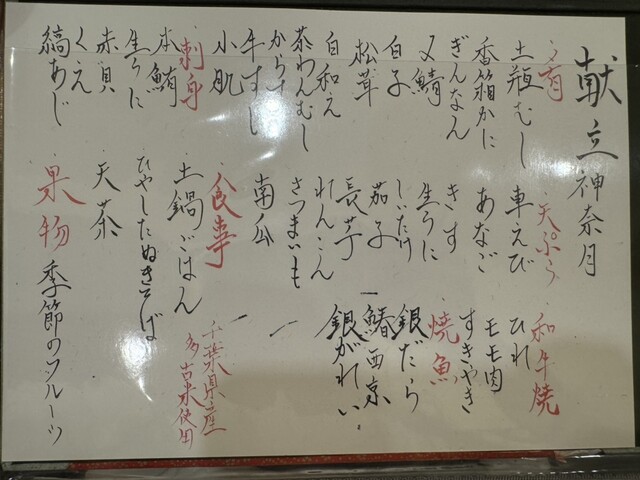 献立 神奈月
・肴
土瓶むし
香箱かに
ぎんなん
〆鯖
白子
松茸
白和え
茶わんむし
からすみ
牛すじ
小肌
刺身
本鮪
生うに
赤貝
くえ
縞あじ
・天ぷら
車えび
あなご
きす
生うに
しいたけ
茄子
長芋
れんこん
さつまいも
南瓜
・食事
土鍋ごはん
千葉県産
多古米使用
ひやしたぬきそば
天茶
・和牛焼
ひれ
モモ肉
すきやき
・焼魚
銀だら
鰆西京
銀がれい
果物
季節のフルーツ